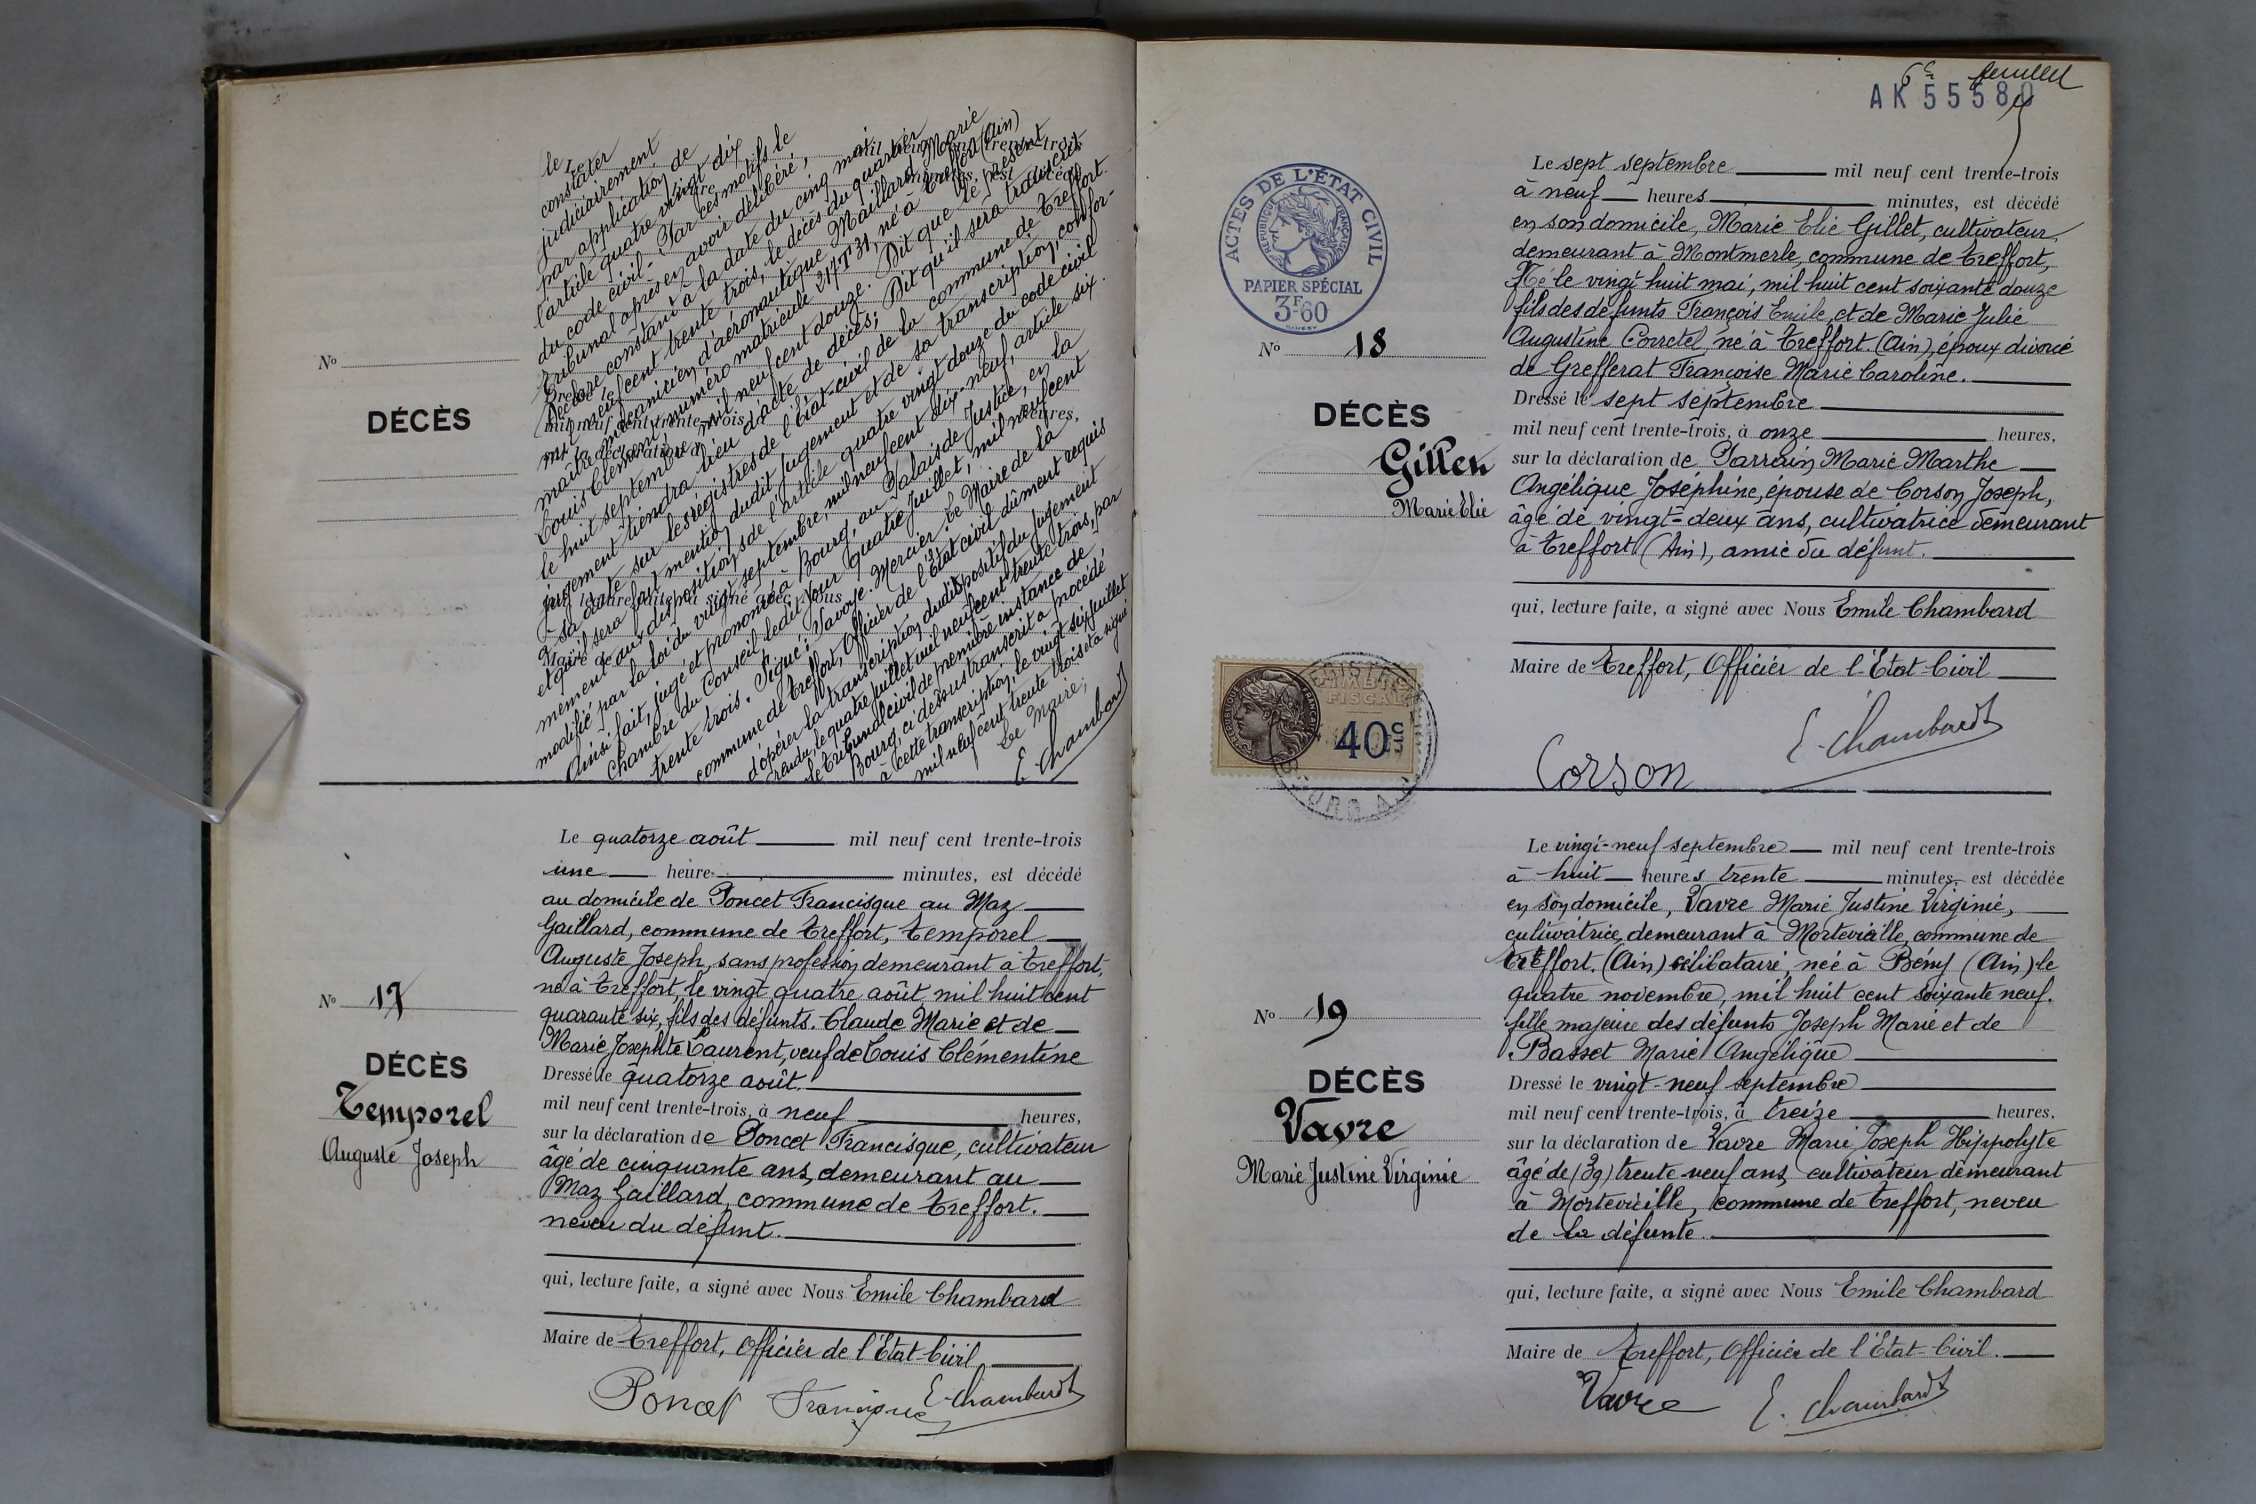 le
constater
judiciairement
par application de
l'article quatre vingt dix
du code civil.- Par ces motifs le
Tribunal après en avoir délibéré,
Déclare constant à la date du cinq mai
mil neuf cent trente trois, le décès du quartier
maître mécanicien d'aéronautique Maillard Marie
Louis Clément, numéro matricule 217 T 31, né à Treffort (Ain)
le huit septembre mil neuf cent douze. Dit que le présent
jugement tiendra lieu d'acte de décès; Dit qu'il sera transcrit
à sa date sur les registres de l'état-civil de la commune de Treffort.
et qu'il sera fait mention dudit jugement et de sa transcription, confor-
mement aux dispositions de l'article quatre vingt douze du code civil
modifié par la loi du vingt septembre, mil neuf cent dix-neuf, article six.
Ainsi fait, jugé et prononcé à Bourg, au Palais de Justice, en la
Chambre du Conseil, ledit jour quatre Juillet, mil neuf cent
trente trois. Signé: Savoye. Mercier. Le Maire de la
commune de Treffort, Officier de l'Etat civil dûment requis
d'opérer la transcription du dispositif du Jugement
rendu, le quatre juillet mil neuf cent trente trois, par
le tribunal civil de première instance de
Bourg, ci dessus transcrit a procédé
à cette transcription, le vingt six juillet
mil neuf cent trente trois et a signé
Le Maire;
E. Chambard
No
DÉCÈS
Le quatorze août mil neuf cent trente-trois
une heure minutes, est décédé
au domicile de Poncet Francisque au Maz
Gaillard, commune de Treffort, Temporel
Auguste Joseph, sans profession demeurant à Treffort,
né à Treffort, le vingt quatre août mil huit cent
quarante six, fils des défunts. Claude Marie et de
Marie Josephte Laurent, veuf de Louis Clémentine
Dressé le quatorze août.
mil neuf cent trente-trois, à neuf heures,
sur la déclaration de Poncet Francisque, cultivateur
âgé de cinquante ans, demeurant au
Maz Gaillard, commune de Treffort.
neveu du défunt.
qui, lecture faite, a signé avec Nous Emile Chambard
Maire de Treffort, Officier de l'Etat-Civil
Poncet Francisque E. Chambard
No 17
DÉCÈS
Temporel
Auguste Joseph
6e feuillet
AK 55580
ACTES DE L'ÉTAT CIVIL
RÉPUBLIQUE FRANÇAISE
PAPIER SPÉCIAL
3F60
No 18
DÉCÈS
Gillet
Marie Elie
Le sept septembre mil neuf cent trente-trois
à neuf heures minutes, est décédé
en son domicile, Marie Elie Gillet, cultivateur,
demeurant à Montmerle, commune de Treffort,
Né le vingt huit mai, mil huit cent soixante douze
fils des défunts François Emile, et de Marie Julie
Augustine Corretel, né à Treffort. (Ain), époux divorcé
de Grefferat Françoise Marie Caroline.
Dressé le sept septembre
mil neuf cent trente-trois, à onze heures,
sur la déclaration de Parrain Marie Marthe
Angélique Joséphine, épouse de Corson Joseph,
âgé de vingt-deux ans, cultivatrice demeurant
à Treffort (Ain), amie du défunt.
qui, lecture faite, a signé avec Nous Emile Chambard
Maire de Treffort, Officier de l'Etat-Civil
E. Chambard
Corson
TIMBRE
FISCAL
40c
Le vingt-neuf septembre mil neuf cent trente-trois
à huit heures trente minutes, est décédée
en son domicile, Vavre Marie Justine Virginie,
cultivatrice, demeurant à Mortevieille, commune de
Treffort. (Ain) célibataire, née à Bény (Ain) le
quatre novembre, mil huit cent soixante neuf.
fille majeure des défunts Joseph Marie et de
Basset Marie Angélique
Dressé le vingt-neuf septembre
mil neuf cent trente-trois, à treize heures,
sur la déclaration de Vavre Marie Joseph Hippolyte
âgé de (39) trente-neuf ans, cultivateur demeurant
à Mortevieille, commune de Treffort, neveu
de la défunte.
qui, lecture faite, a signé avec Nous Emile Chambard
Maire de Treffort, Officier de l'Etat-Civil.
Vavre E. Chambard
No 19
DÉCÈS
Vavre
Marie Justine Virginie